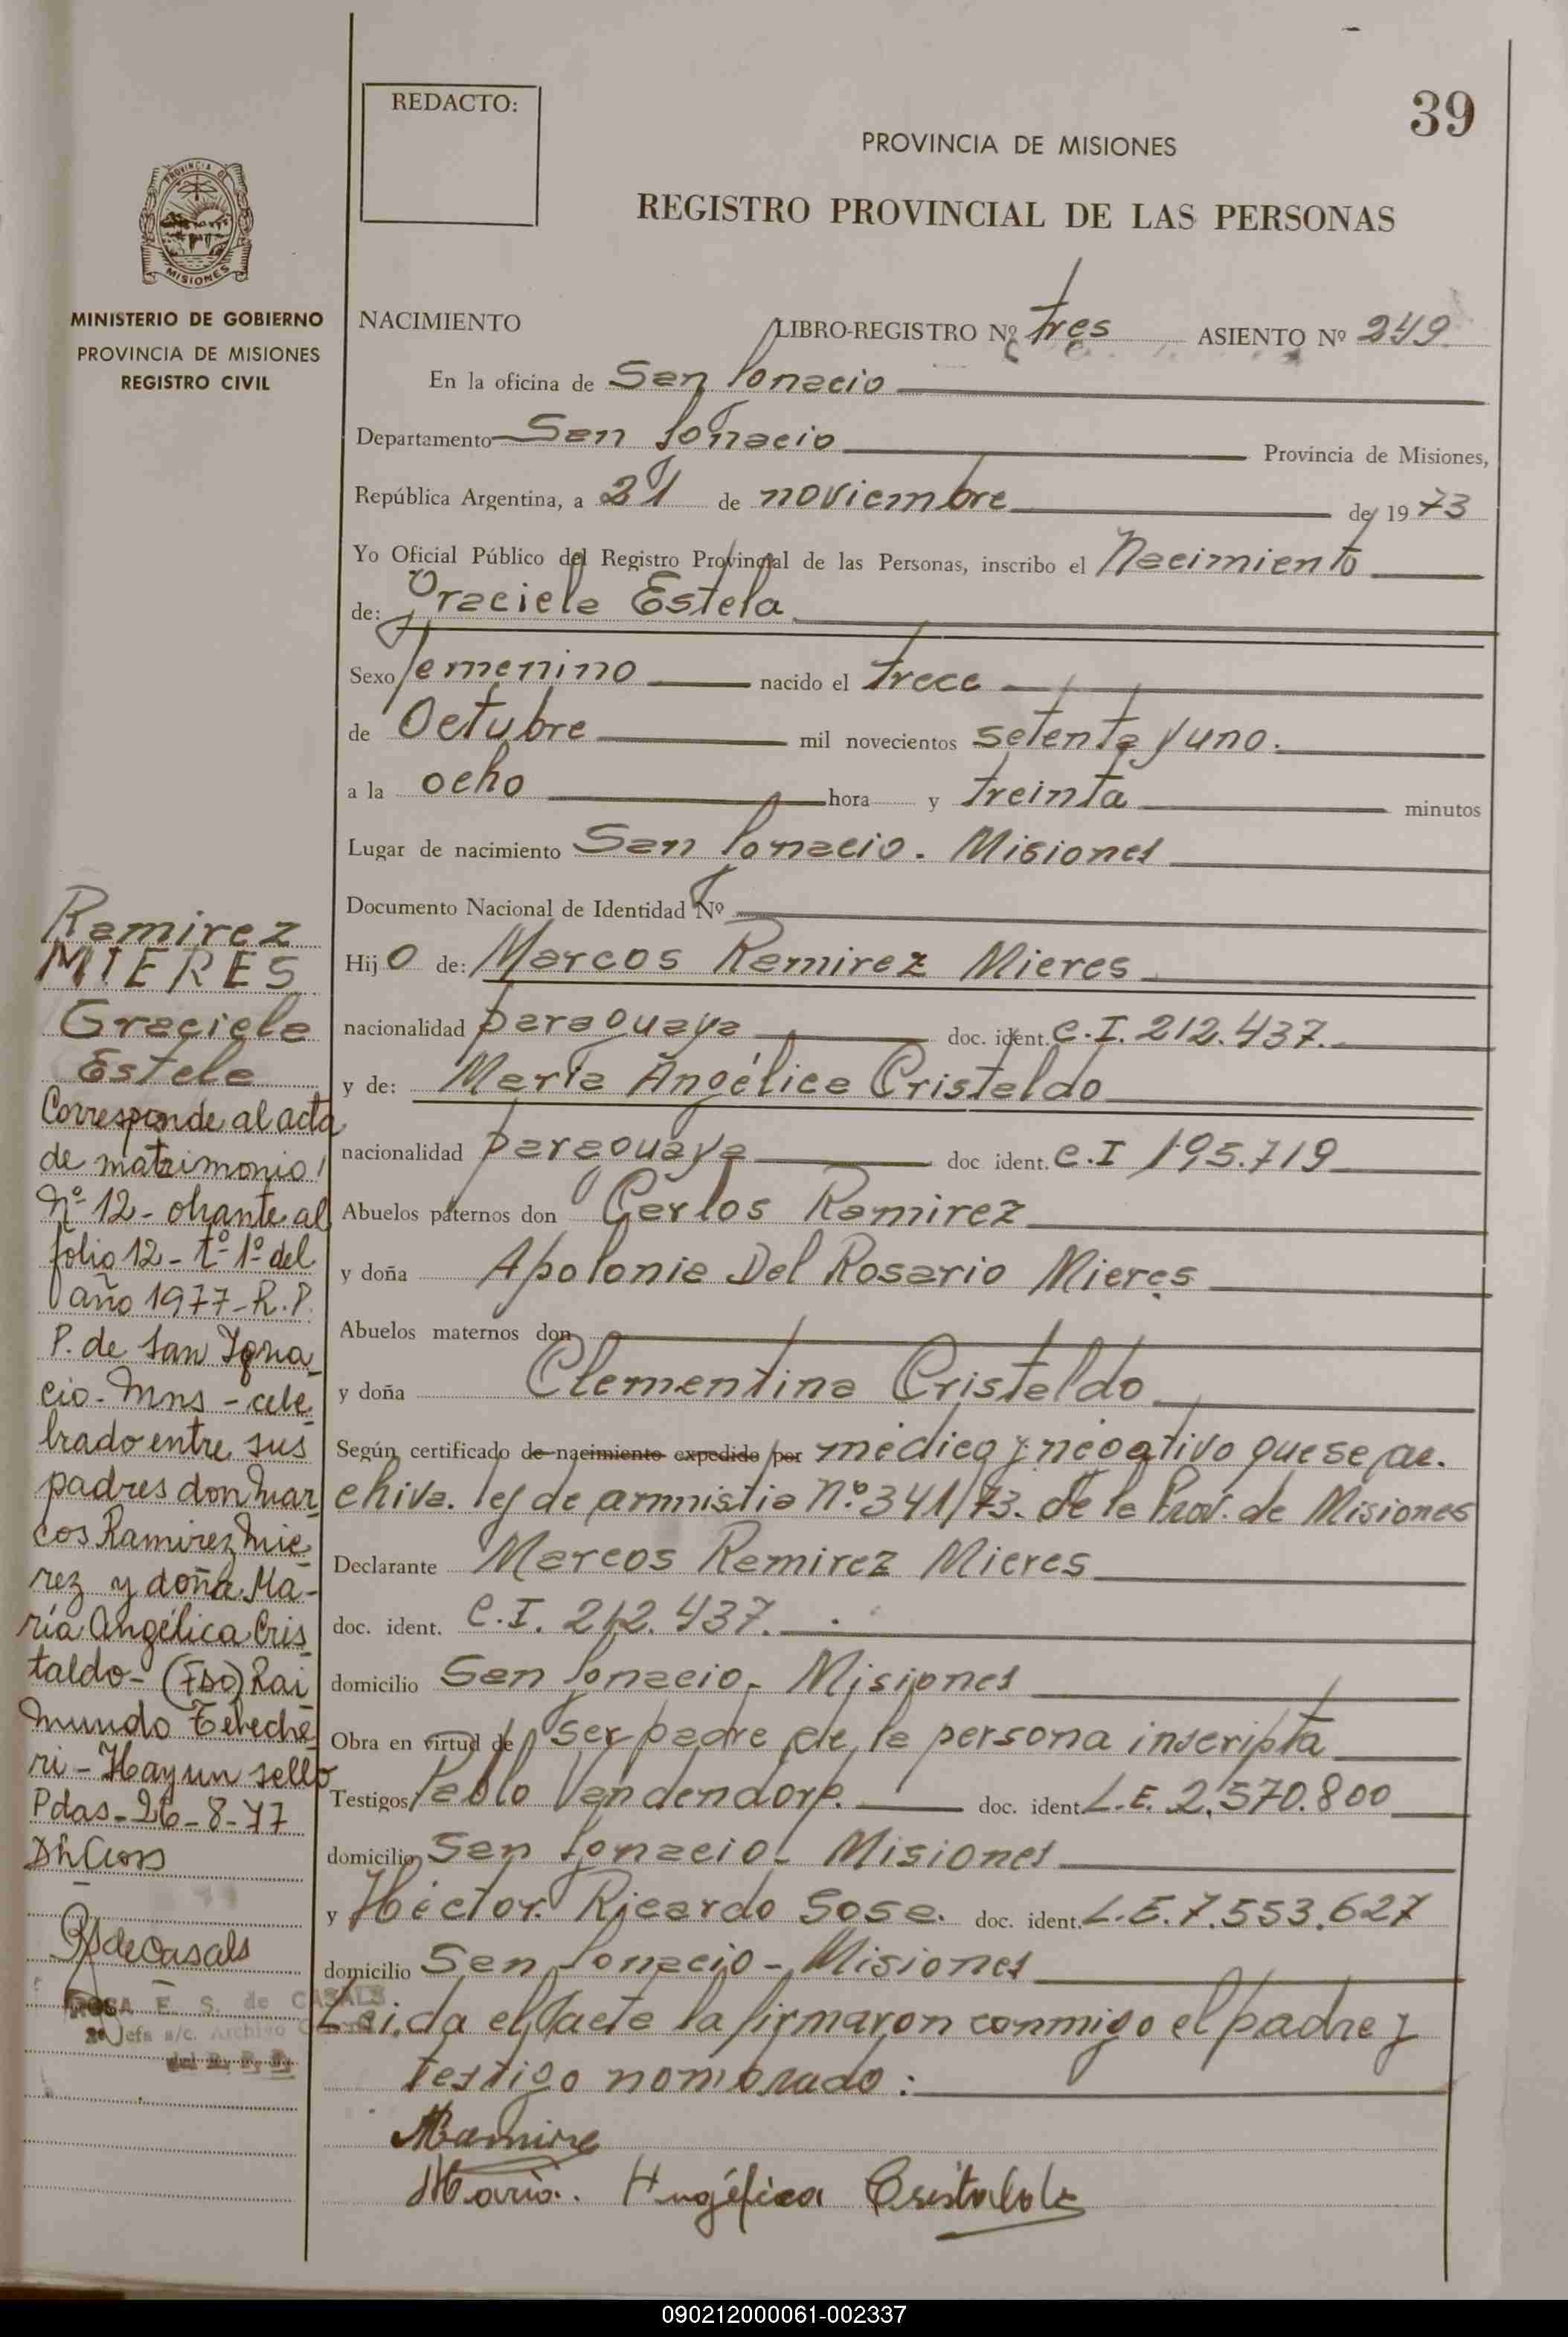 REDACTO:
39
PROVINCIA DE MISIONES
REGISTRO PROVINCIAL DE LAS PERSONAS
PROVINCIA DE
MISIONES
MINISTERIO DE GOBIERNO
PROVINCIA DE MISIONES
REGISTRO CIVIL
NACIMIENTO LIBRO-REGISTRO Nº tres ASIENTO Nº 249
En la oficina de San Ignacio
Departamento San Ignacio Provincia de Misiones,
República Argentina, a 21 de noviembre de 19 73
Yo Oficial Público del Registro Provincial de las Personas, inscribo el Nacimiento
de: Graciela Estela
Sexo femenino nacido el trece
de Octubre mil novecientos setenta y uno.
a la ocho hora y treinta minutos
Lugar de nacimiento San Ignacio. Misiones
Documento Nacional de Identidad Nº
Hij o de: Marcos Ramirez Mieres
nacionalidad paraguaya doc. ident. C.I. 212.437.
y de: María Angélica Cristaldo
nacionalidad paraguaya doc ident. C.I 195.719
Abuelos paternos don Carlos Ramirez
y doña Apolonia Del Rosario Mieres
Abuelos maternos don
y doña Clementina Cristaldo
Según certificado de nacimiento expedido por médico y negativo que se ar.
chiva. ley de amnistia Nº 341/73. de la Prov. de Misiones
Declarante Marcos Ramirez Mieres
doc. ident. C.I. 212.437.
domicilio San Ignacio. Misiones
Obra en virtud de ser padre de la persona inscripta
Testigos Pablo Vandendorp. doc. ident. L.E. 2.570.800
domicilio San Ignacio- Misiones
y Héctor Ricardo Sosa. doc. ident. L.E. 7.553.627
domicilio San Ignacio - Misiones
Leida el acta la firmaron conmigo el padre y
testigo nombrado:
Ramire
Maria. Angélica Cristaldo
Ramirez
MIERES
Graciela
Estela
Corresponde al acta
de matrimonio
Nº 12 - obrante al
folio 12 - tº 1º del
año 1977 - R.P.
P. de San Igna
cio. Mns - cele
brado entre sus
padres don Mar
cos Ramirez Mie
rez y doña Ma-
ría Angélica Cris
taldo - (FDO) Rai
mundo
ri - Hay un sello
Pdas - 26 - 8 - 77
RS de Casals
ROSA E. S. de CASALS
2ª Jefa a/c. Archivo
del R. P. P.
090212000061-002337